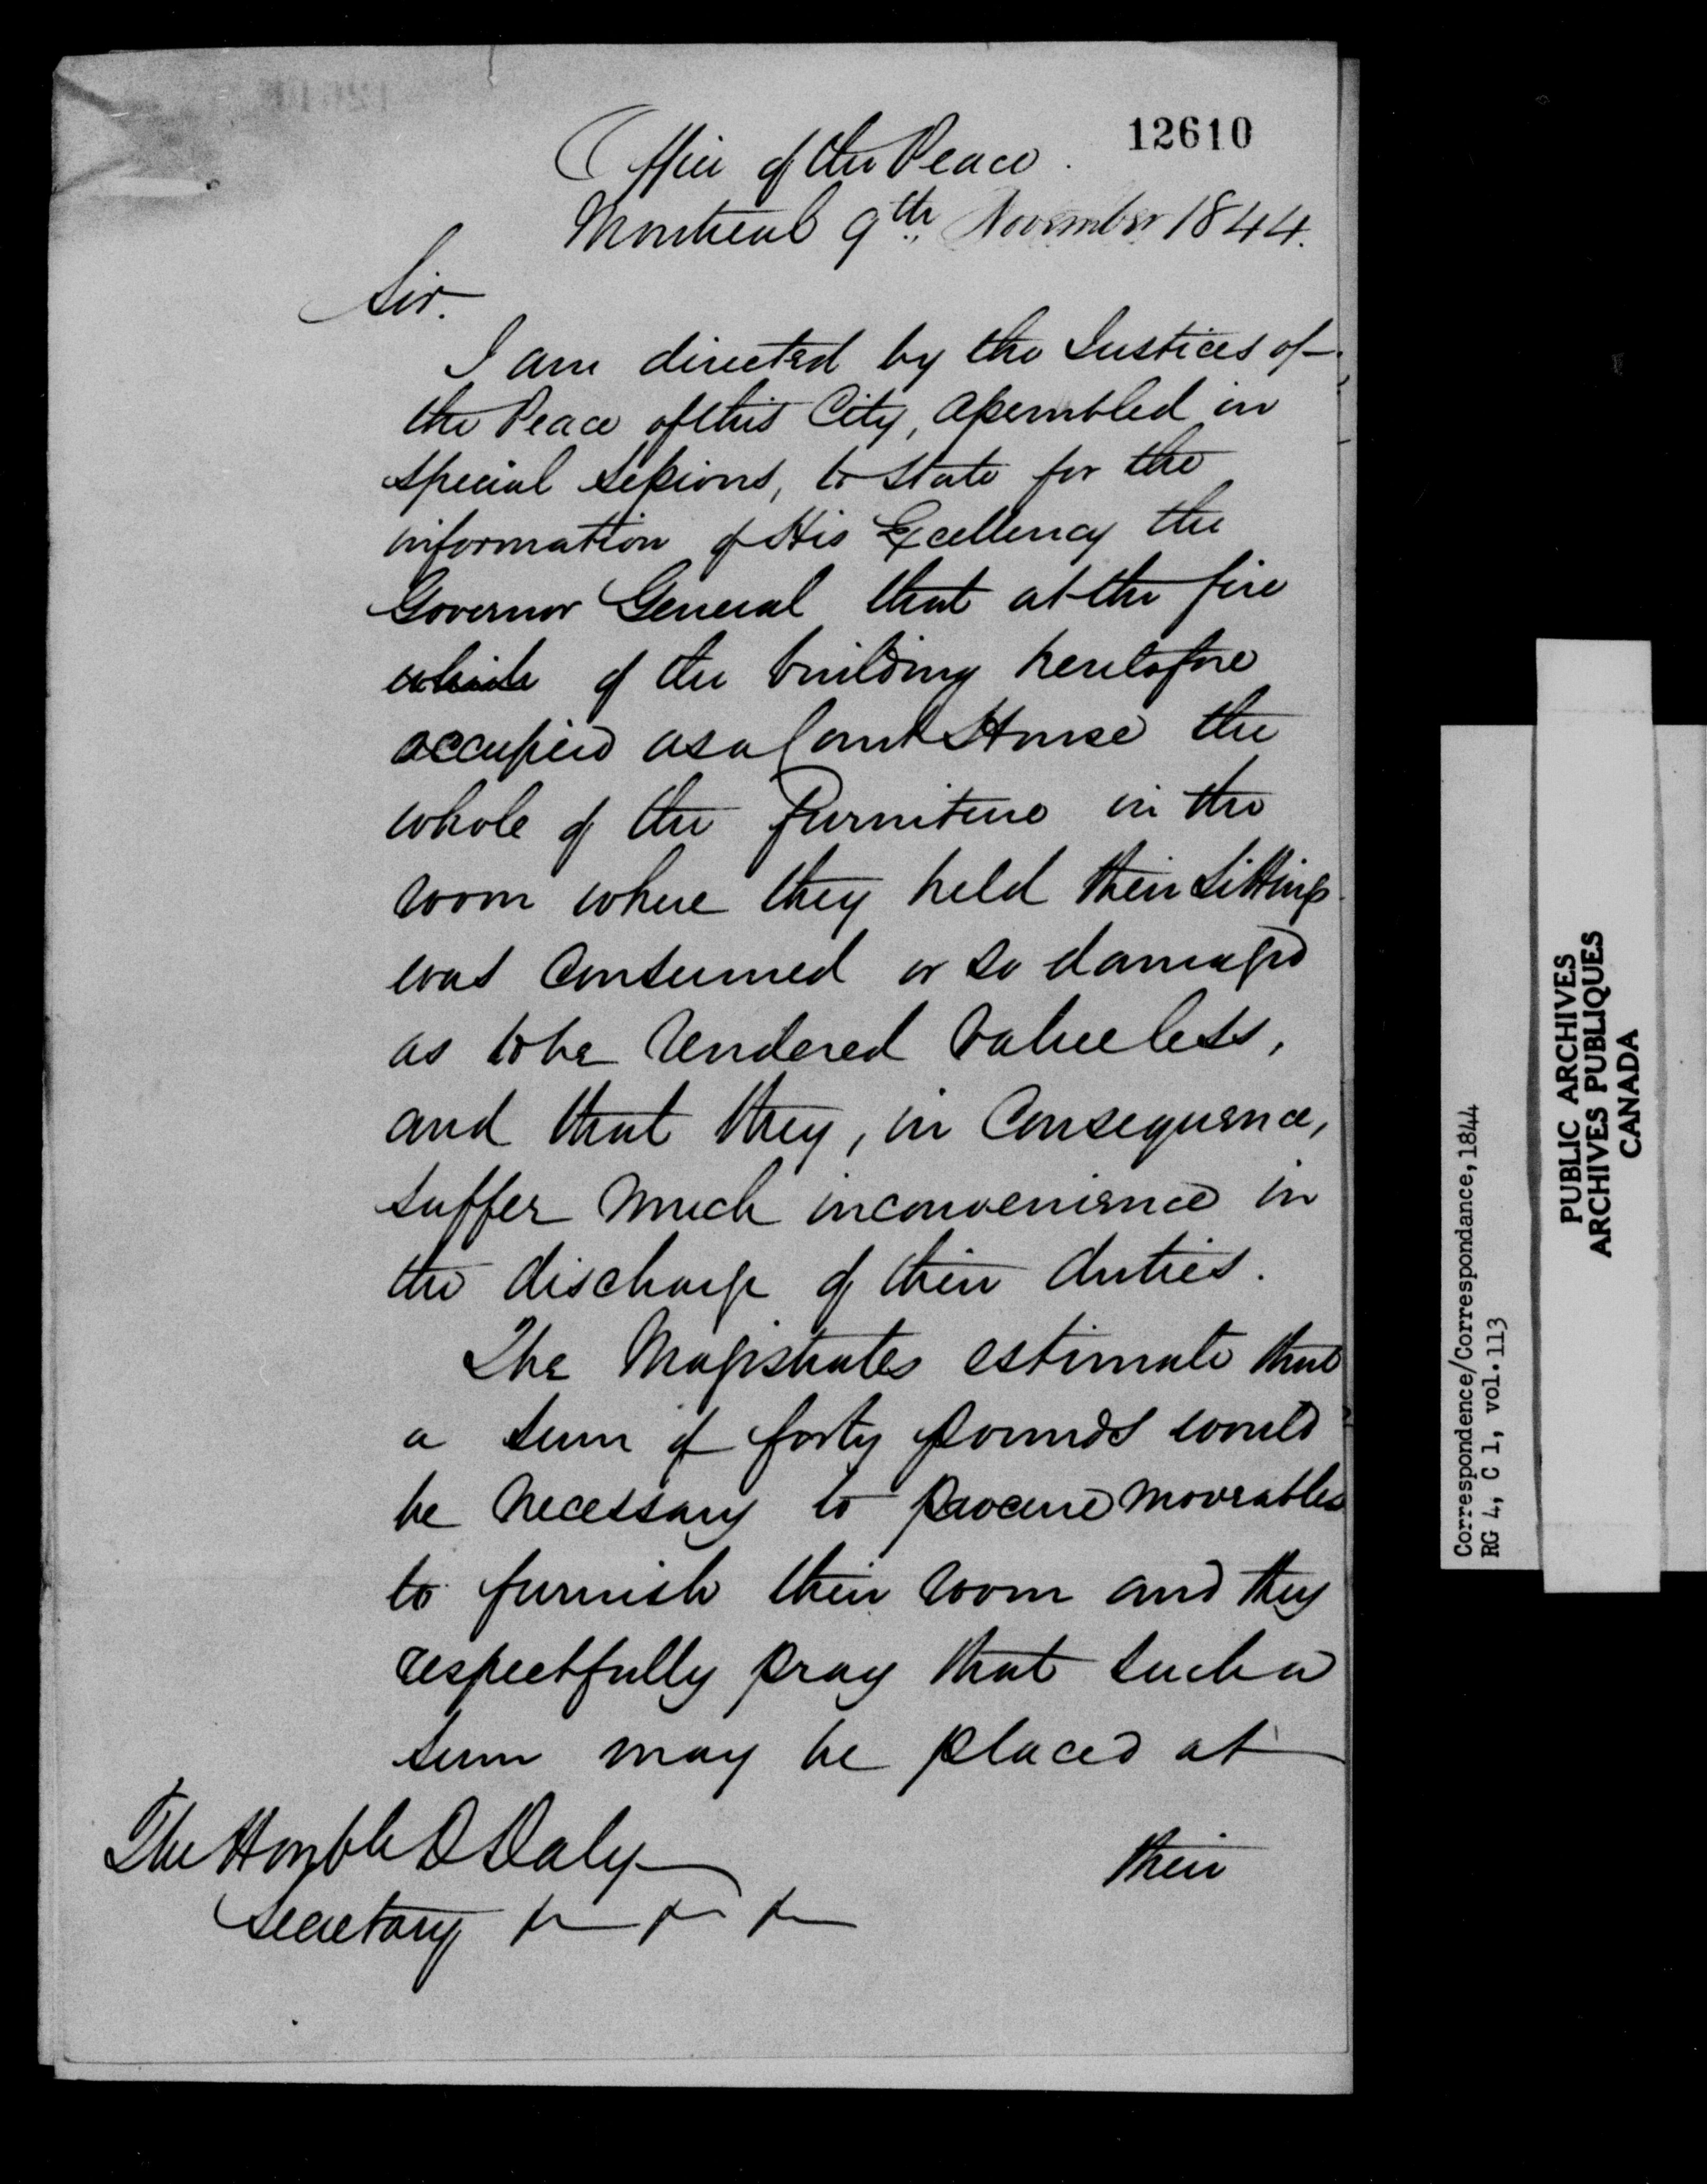 12610
Office of the Peace.
Montreal 9th November 1844.
Sir.
I am directed by the Justices of
the Peace of this City, assembled in
special sessions, to state for the
information of His Excellency the
Governor General that at the fire
which of the building heretofore
occupied as a Court House the
whole of the furniture in the
room where they held their sittings
was consumed or so damaged
as to be rendered valueless,
and that they, in consequence,
suffer much inconvenience in
the discharge of their duties.
The Magistrates estimate that
a sum of forty pounds would
be necessary to procure moveables
to furnish their room and they
respectfully pray that such a
sum may be placed at
their
The Honble D Daly
Secretary &c &c &c
Correspondence/Correspondance, 1844
RG 4, C 1, vol. 113
PUBLIC ARCHIVES
ARCHIVES PUBLIQUES
CANADA